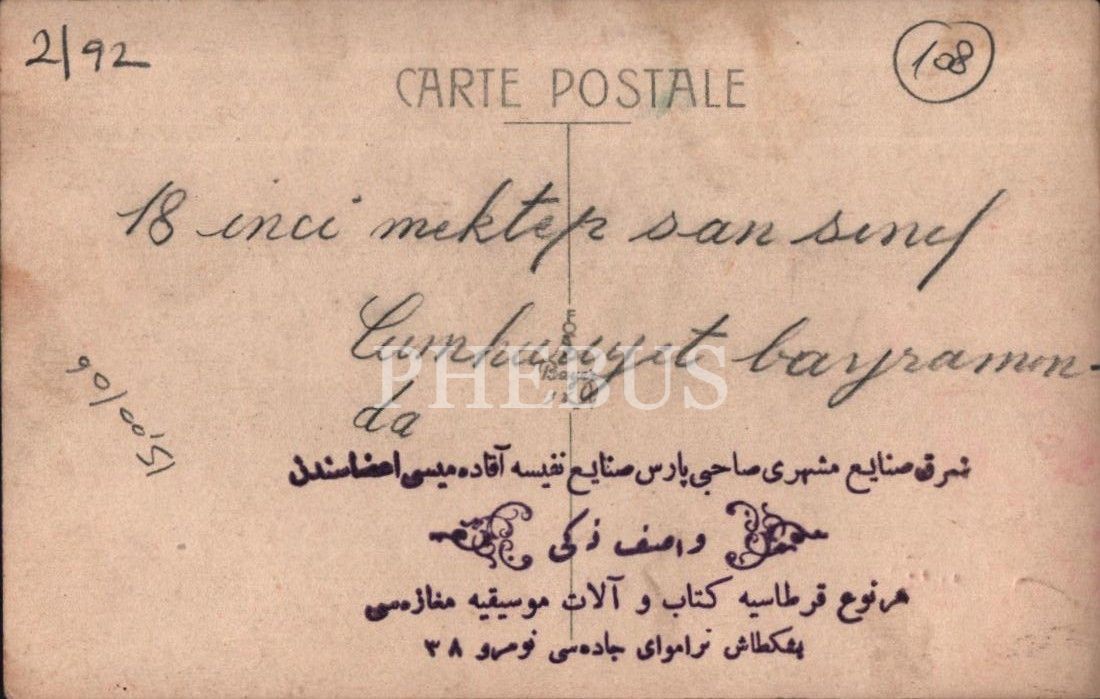 2/92
108
CARTE POSTALE
18 inci mektep san sınıf
Cumhuriyet bayramın-
da
PHEBUS
شرق صنايع مشهری صاحبی پارس صنايع نفيسه آقاده ميسی اعضاسندن
واصف زكی
هر نوع قرطاسيه كتاب و آلات موسيقيه مغازه سی
بشكطاش تراموای جاده سی نومرو ٣٨